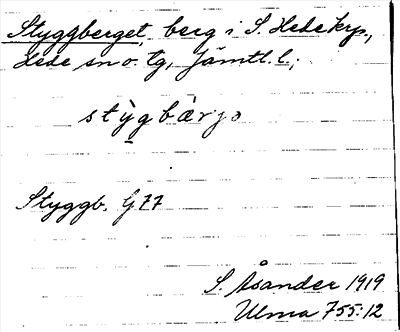 Styggberget, berg i S. Hede krp.,
Hede sn o. tg, Jämtl. l.;
stỳgbärjə
Styggb. G 77
S. Åsander 1919
Ulma 755:12